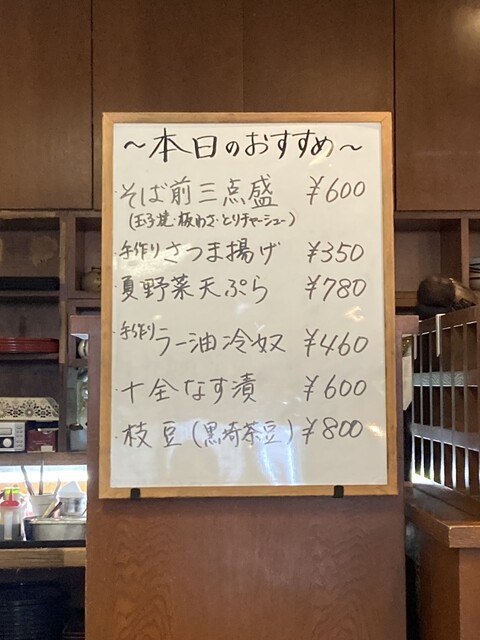 ～本日のおすすめ～
・そば前三点盛 ¥600
(玉子焼・板わさ・とりチャーシュー)
・手作りさつま揚げ ¥350
・夏野菜天ぷら ¥780
・手作りラー油冷奴 ¥460
・十全なす漬 ¥600
・枝豆(黒埼茶豆) ¥800